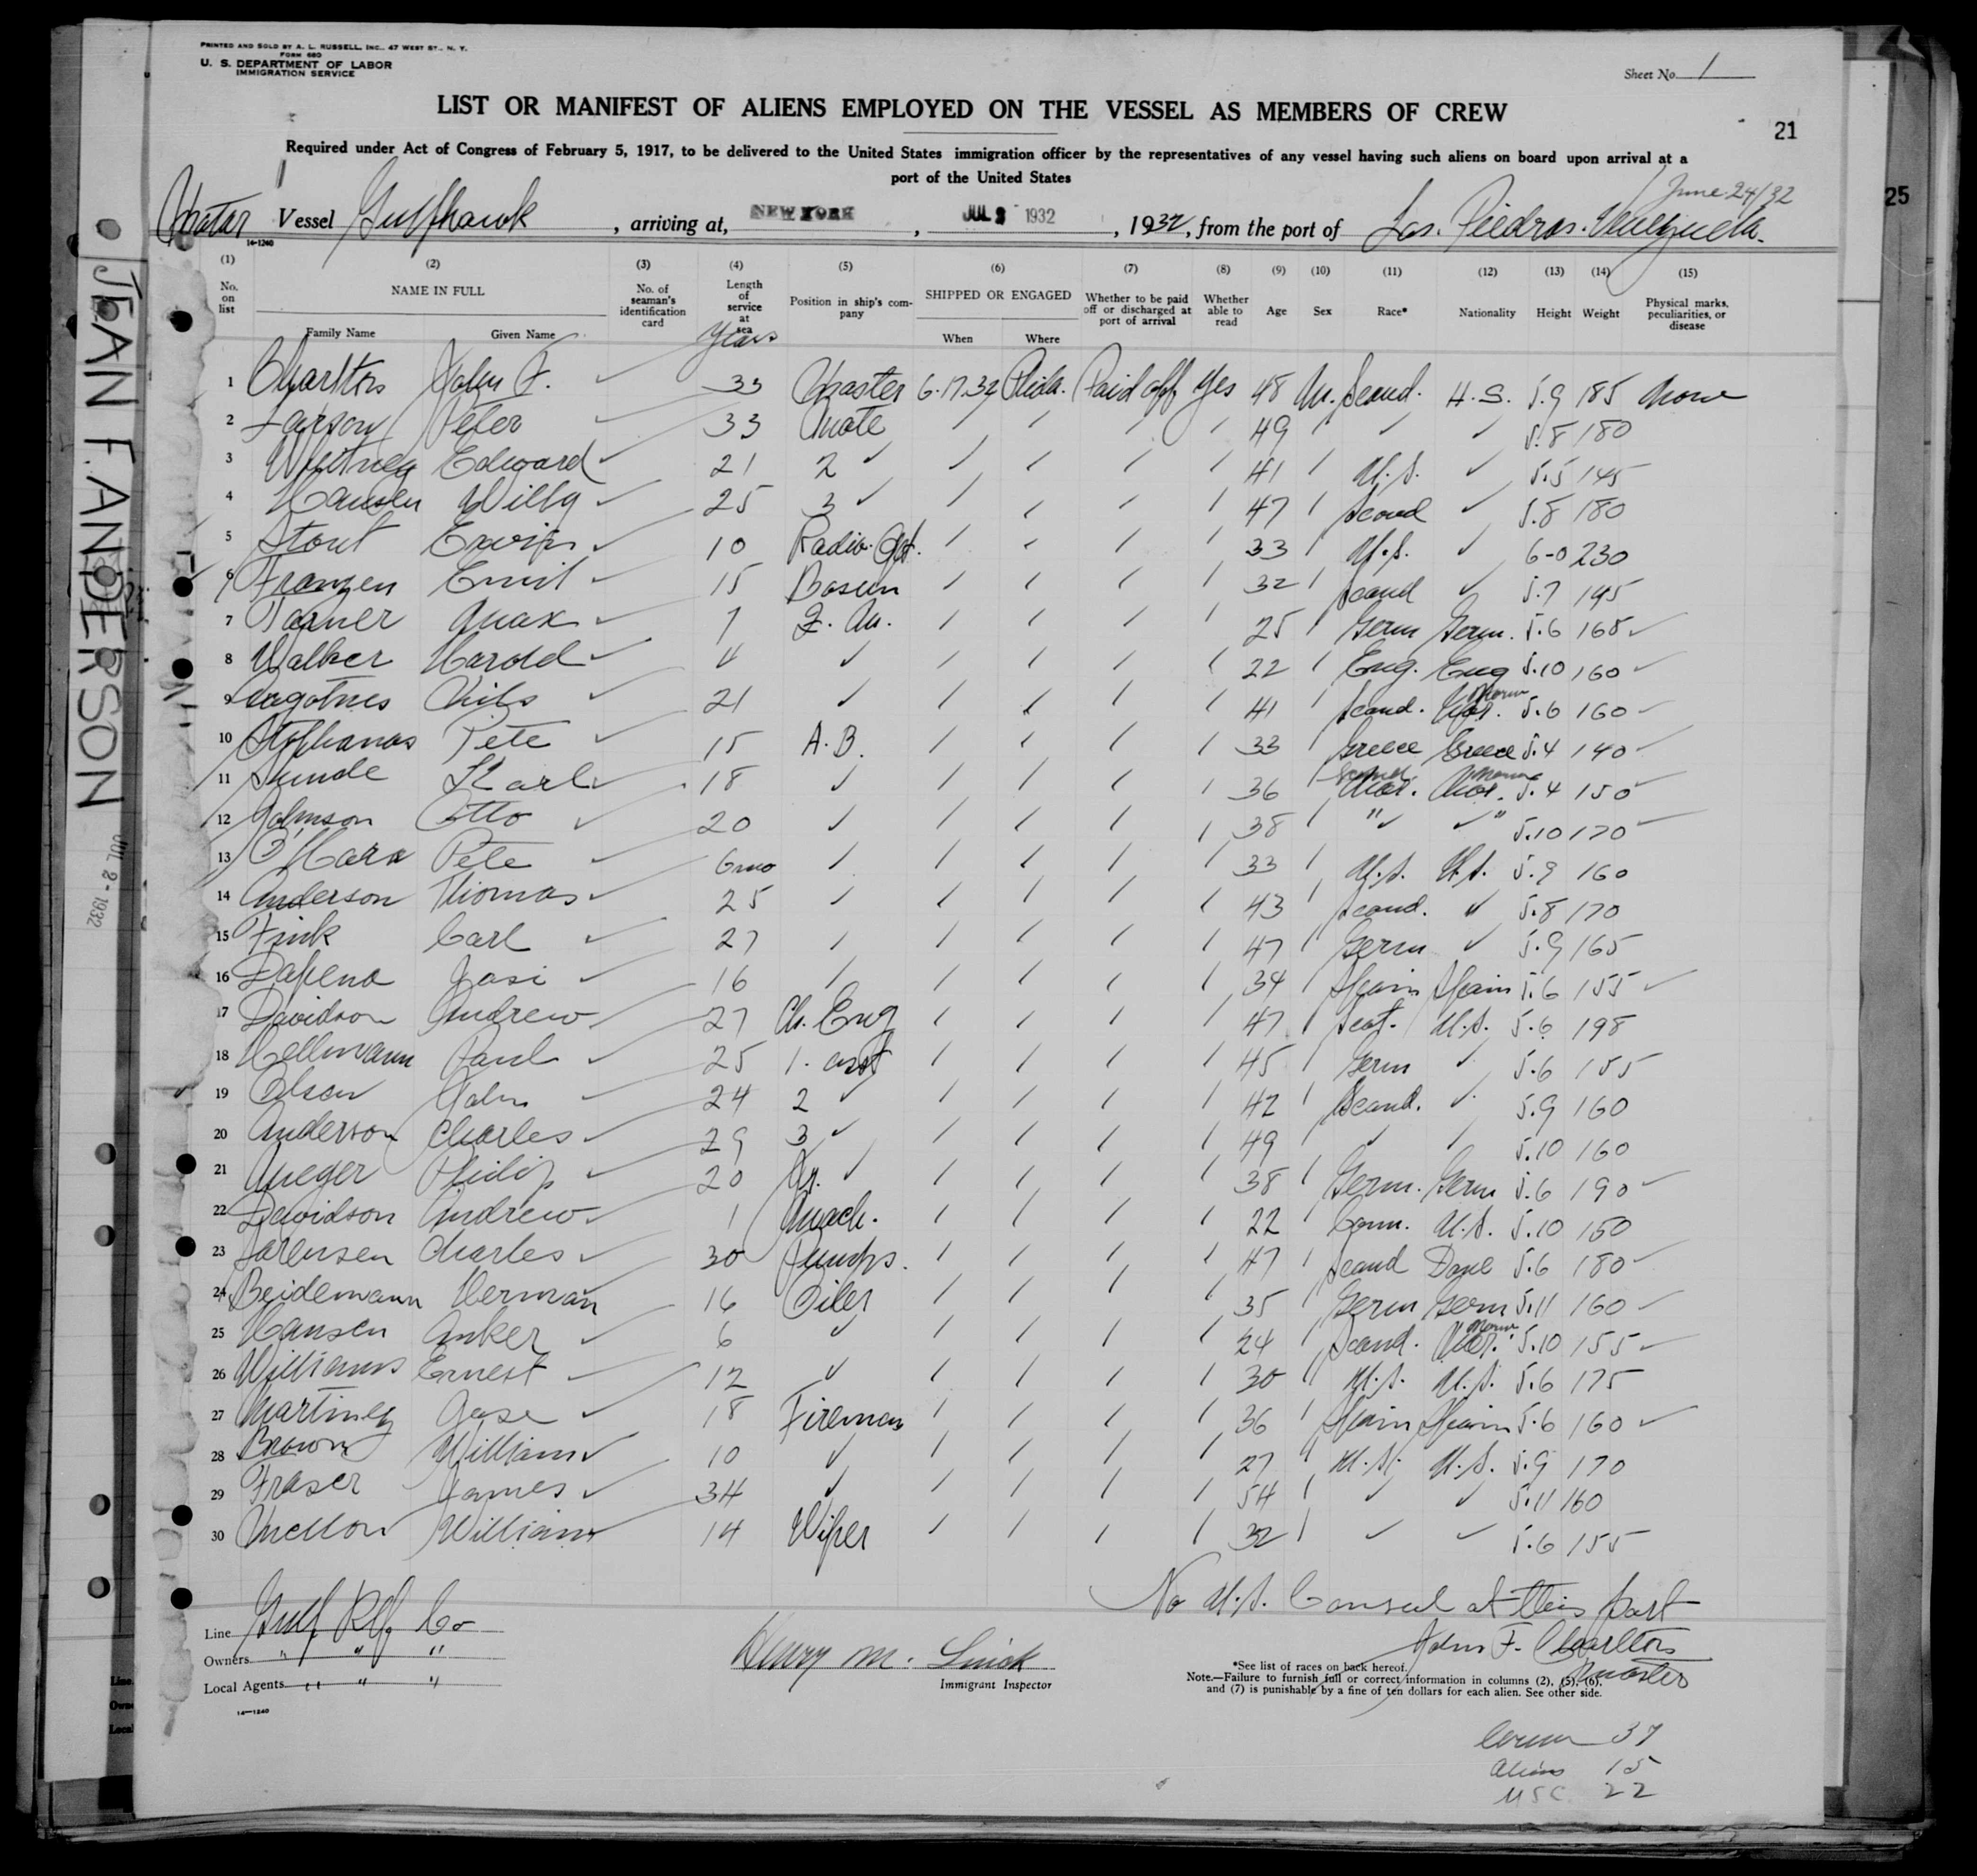 PRINTED AND SOLD BY A. L. RUSSELL, INC., 47 WEST ST., N. Y.
FORM 680
U. S. DEPARTMENT OF LABOR
IMMIGRATION SERVICE
Sheet No. 1
LIST OR MANIFEST OF ALIENS EMPLOYED ON THE VESSEL AS MEMBERS OF CREW
21
25
Required under Act of Congress of February 5, 1917, to be delivered to the United States immigration officer by the representatives of any vessel having such aliens on board upon arrival at a
port of the United States
June 24/32
Vessel Gulfhawk, arriving at, NEW YORK, JUL 1932, 1932, from the port of Las. Piedras. Venezuela.
14-1240
(1) (2) (3) (4) (5) (6) (7) (8) (9) (10) (11) (12) (13) (14) (15)
No. on list NAME IN FULL Family Name Given Name No. of seaman's identification card Length of service at sea Years Position in ship's company SHIPPED OR ENGAGED When Where Whether to be paid off or discharged at port of arrival Whether able to read Age Sex Race* Nationality Height Weight Physical marks, peculiarities, or disease
1 Charltos John F. 33 Master 6.17.32 Phila. Paid off Yes 48 M. Scand. U.S. 5.9 185 None
2 Larson Peter 33 Mate 49 5.8 180
3 Whitney Edward 21 2 ✓ 41 U.S. ✓ 5.5 145
4 Hansen Willy 25 3 ✓ 47 Scand ✓ 5.8 180
5 Stout Erwin 10 Radio. Opt. 33 U.S. ✓ 6-0 230
6 Franzen Emil 15 Bosun 32 Scand ✓ 5.7 195
7 Max 25 Germ Germ. 5.6 168 ✓
8 Walker Harold 4 ✓ 22 Eng. Eng 5.10 160 ✓
9 Nils 21 ✓ 41 Scand. Nor. 5.6 160 ✓
10 Stephanos Pete 15 A.B. 33 Greece Greece 5.4 140 ✓
11 Sunde Karl 18 ✓ 36 Scand. Nor. Nor. 5.4 150 ✓
12 Johnson Otto 20 ✓ 38 " ✓ ✓ " 5.10 170
13 O'Hara Pete 6mo 33 U.S. U.S. 5.9 160
14 Anderson Thomas 25 ✓ 43 Scand. ✓ 5.8 170
15 Fink Carl 27 47 Germ ✓ 5.9 165
16 Dapena Josi 16 34 Spain Spain 5.6 155 ✓
17 Davidson Andrew 27 Ch. Eng 47 Scot. U.S. 5.6 198
18 Hellmann Paul 25 1. asst 45 Germ ✓ 5.6 155
19 Olsen John 24 2 ✓ 42 Scand. ✓ 5.9 160
20 Anderson Charles 29 3 ✓ 49 ✓ ✓ 5.10 160
21 Philip 20 Jr. ✓ 38 Germ. Germ 5.6 190 ✓
22 Davidson Andrew 1 Mach. 22 U.S. 5.10 150
23 Sorensen Charles 30 Pumps. 47 Scand Dane 5.6 180 ✓
24 Beidemann Herman 16 Oiler 35 Germ Germ 5.11 160 ✓
25 Hansen Anker 6 ✓ 24 Scand. Nor. 5.10 155 ✓
26 Williams Ernest 12 ✓ 30 U.S. U.S. 5.6 175
27 Martinez Jose 18 Fireman 36 Spain Spain 5.6 160 ✓
28 Brown William 10 ✓ 27 U.S. U.S. 5.9 170
29 Fraser James 34 ✓ 54 ✓ ✓ 5.11 160
30 Mellon William 14 Wiper 32 ✓ ✓ 5.6 155
No U.S. Consul at this port
John F. Charltos
Master
Line Gulf Rfg Co
Owners " " "
Local Agents " " "
14-1240
Henry M.
Immigrant Inspector
*See list of races on back hereof.
Note.—Failure to furnish full or correct information in columns (2), (5), (6),
and (7) is punishable by a fine of ten dollars for each alien. See other side.
37
Aliens 15
USC 22
JEAN F. ANDERSON
JUL 2 - 1932
Line
Local